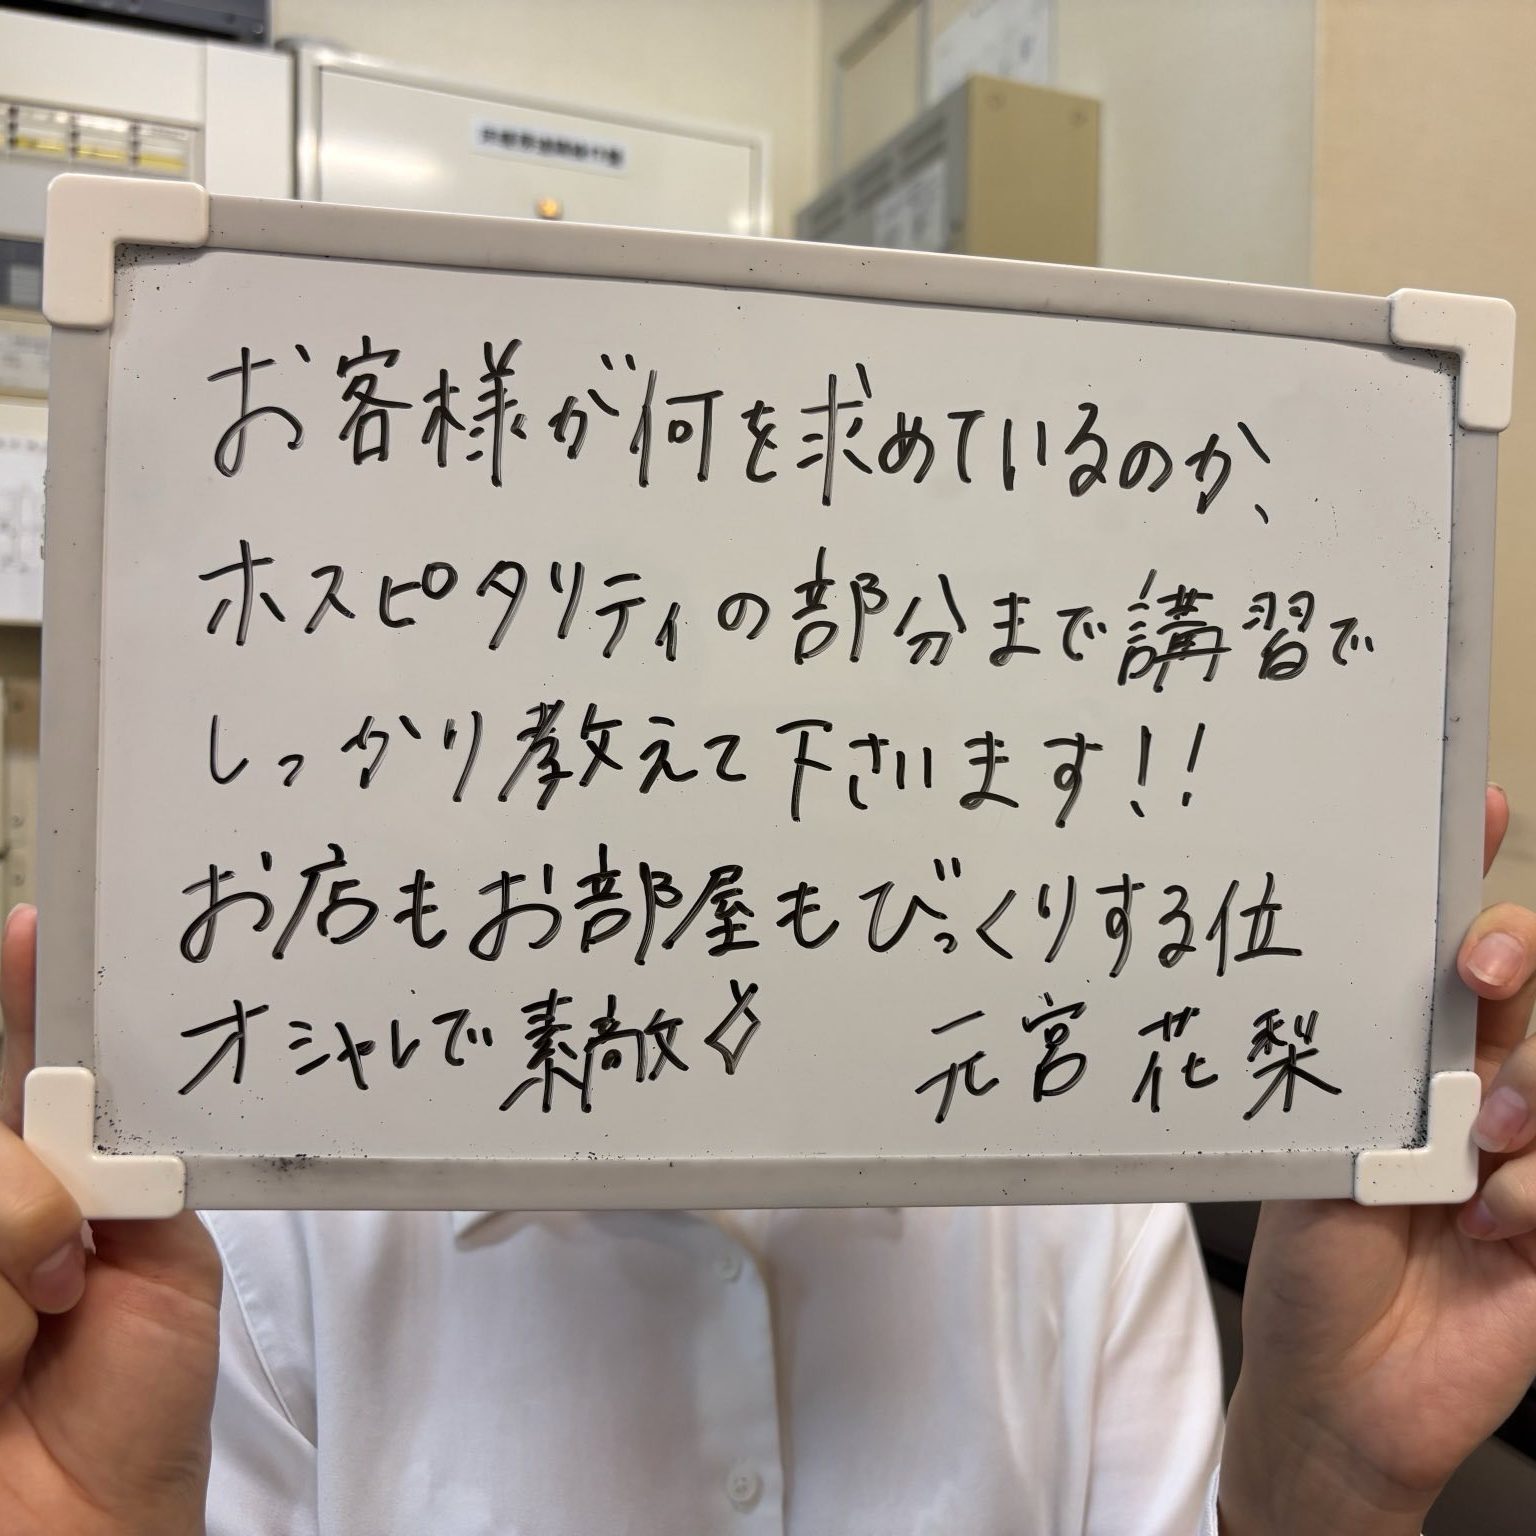 お客様が何を求めているのか、
ホスピタリティの部分まで講習で
しっかり教えて下さいます!!
お店もお部屋もびっくりする位
オシャレで素敵
元宮 花梨